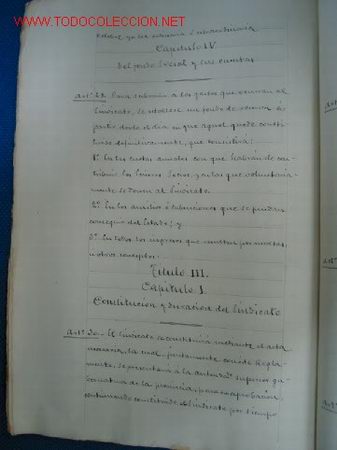 www.TODOCOLECCION.NET
Capítulo IV
Del fondo Social y sus cuentas
Artº 29. Para subvenir a los gastos que ocurran al
Sindicato, se establece un fondo de reserva á
partir desde el día en que aquel quede consti-
tuido definitivamente, que consistirá:
1º En las cuotas anuales con que habrán de con-
tribuir los Socios, y en las que voluntaria-
mente se donen al Sindicato.
2º En los auxilios ó subvenciones que se puedan
conseguir del Estado; y
3º En todos los ingresos que resulten por multas
u otros conceptos.
Título III.
Capítulo I.
Constitución y duración del Sindicato
Artº 30. El Sindicato se constituirá mediante el acta
necesaria, la cual, juntamente con este Regla-
mento, se presentará a la autoridad superior gu-
bernativa de la provincia, para su aprobación,
continuando constituido el Sindicato por tiempo